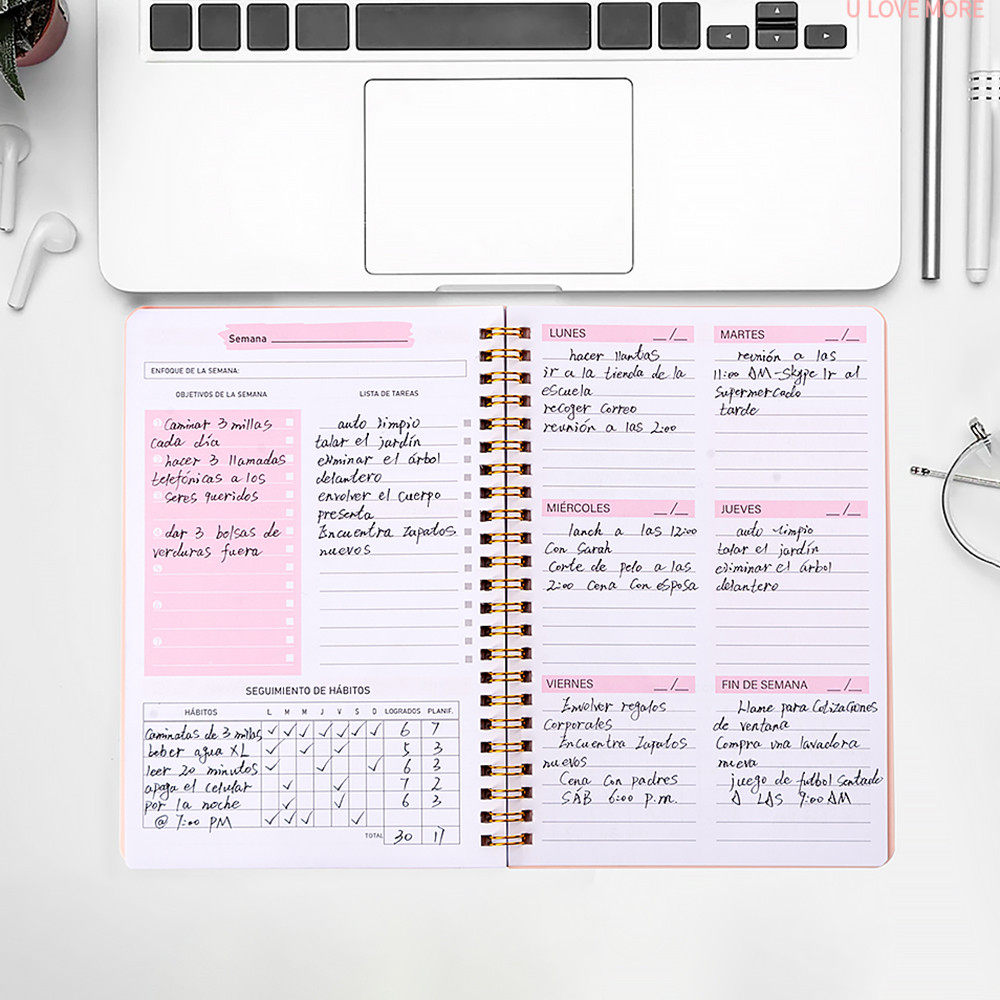 U LOVE MORE
Semana
ENFOQUE DE LA SEMANA:
OBJETIVOS DE LA SEMANA
Caminar 3 millas
cada día
hacer 3 llamadas
telefónicas a los
seres queridos
dar 3 bolsas de
verduras fuera
LISTA DE TAREAS
auto limpio
talar el jardín
eliminar el árbol
delantero
envolver el cuerpo
presenta
Encuentra Zapatos
nuevos
SEGUIMIENTO DE HÁBITOS
HÁBITOS L M M J V S D LOGRADOS PLANIF.
Caminatas de 3 millas 6 7
beber agua XL 5 3
leer 20 minutos 6 3
apaga el celular 7 2
por la noche 6 3
@ 7:00 PM
TOTAL 30 17
LUNES __/__
hacer llantas
ir a la tienda de la
escuela
recoger correo
reunión a las 2:00
MARTES __/__
reunión a las
11:00 AM-Skype Ir al
Supermercado
tarde
MIÉRCOLES __/__
lanch a las 12:00
Con Sarah
Corte de pelo a las
2:00 Cena Con esposa
JUEVES __/__
auto limpio
talar el jardín
eliminar el árbol
delantero
VIERNES __/__
Envolver regalos
Corporales
Encuentra Zapatos
nuevos
Cena Con padres
SÁB 6:00 p.m.
FIN DE SEMANA __/__
Llame para Cotizaciones
de ventana
Compra una lavadora
nueva
juego de futbol Sentado
A LAS 9:00 AM